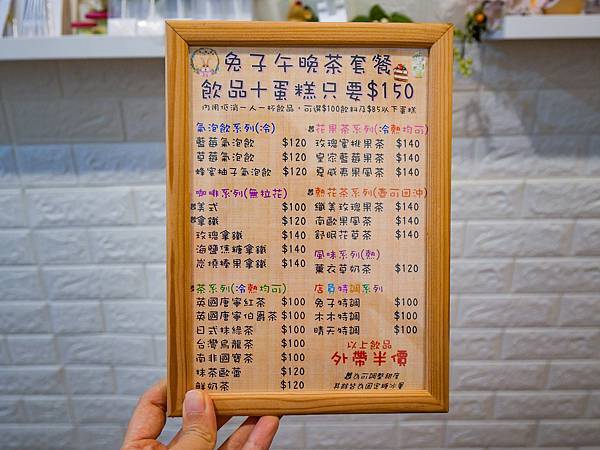 兔子午晚茶套餐
飲品+蛋糕只要$150
內用低消一人一杯飲品，可選$100飲料及$85以下蛋糕
氣泡飲系列(冷)
藍莓氣泡飲 $120
草莓氣泡飲 $120
蜂蜜柚子氣泡飲 $120
咖啡系列(無拉花)
美式 $100
拿鐵 $120
玫瑰拿鐵 $140
海鹽焦糖拿鐵 $140
炭燒榛果拿鐵 $140
茶系列(冷熱均可)
英國唐寧紅茶 $100
英國唐寧伯爵茶 $100
日式抹綠茶 $100
台灣烏龍茶 $100
南非國寶茶 $100
抹茶歐蕾 $120
鮮奶茶 $120
花果茶系列(冷熱均可)
玫瑰蜜桃果茶 $140
皇家藍莓果茶 $140
夏威夷果風茶 $140
熱花茶系列(壺可回沖)
纖美玫瑰果茶 $140
南歐果風茶 $140
舒眠花草茶 $140
風味系列(熱)
薰衣草奶茶 $120
店員特調系列
兔子特調 $100
木木特調 $100
晴天特調 $100
以上飲品
外帶半價
為可調整甜度
其餘皆為固定糖冰量